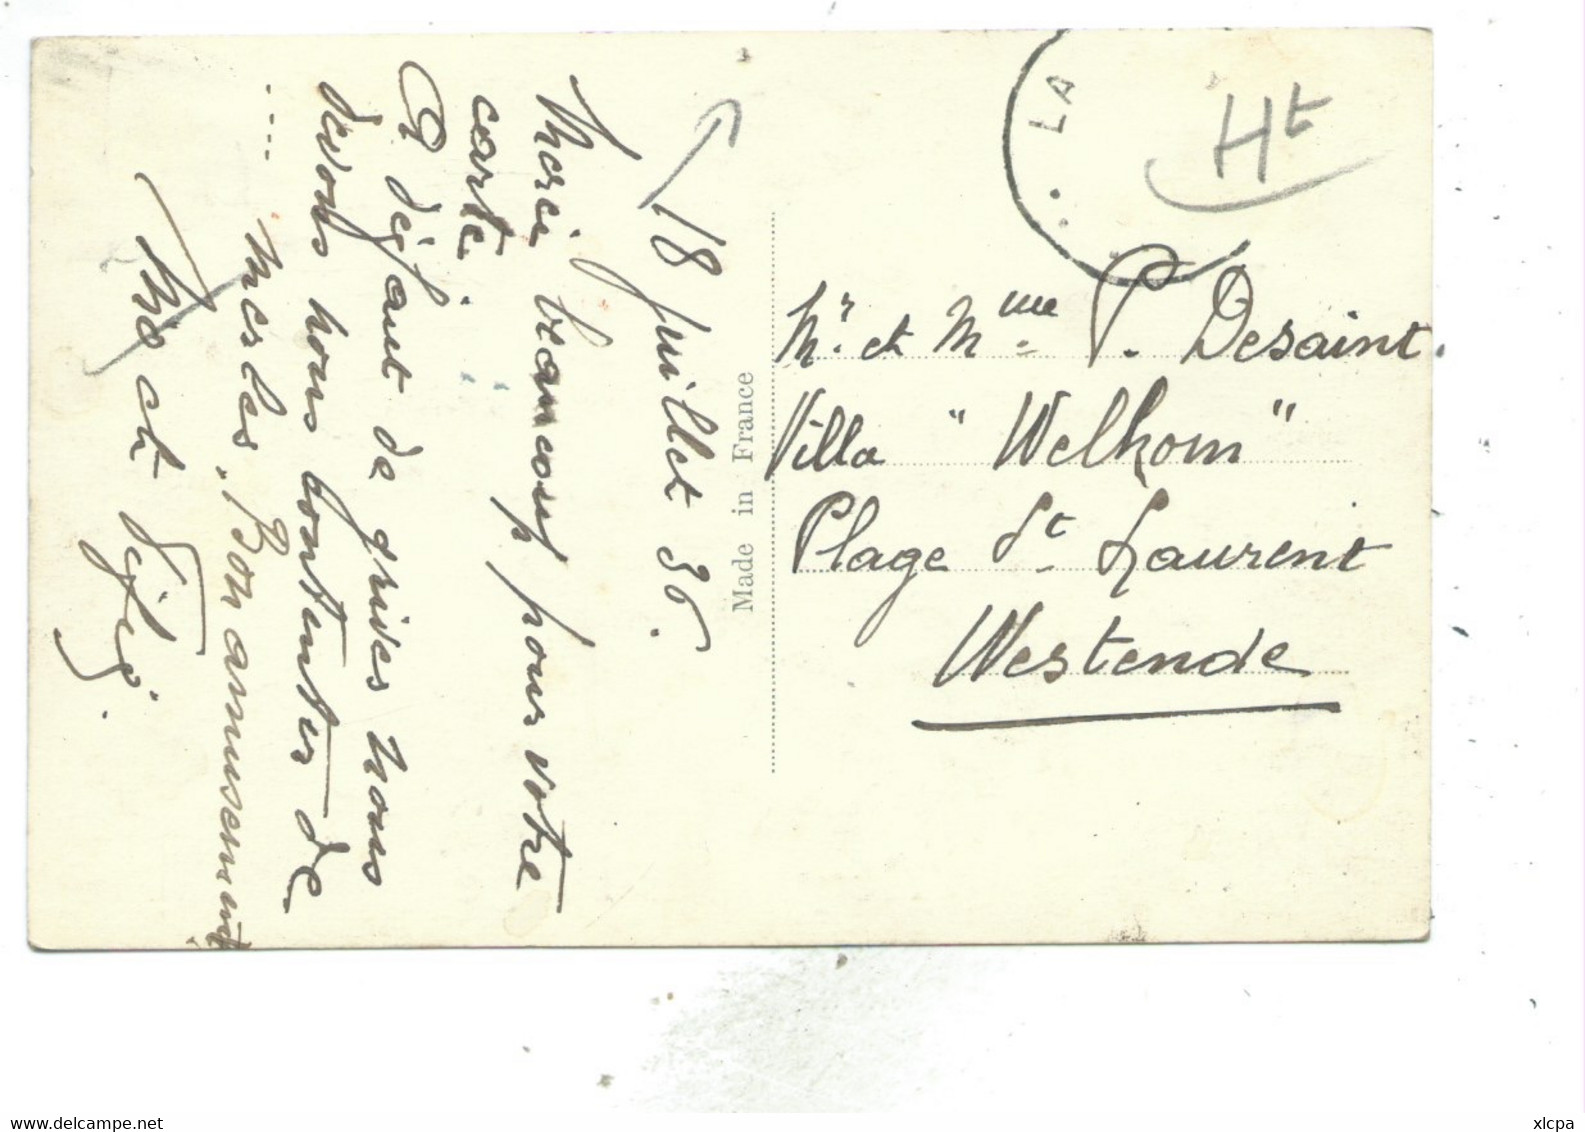 18 juillet 36.
Merci beaucoup pour votre
carte.
A défaut de grives nous
devons nous contenter de
merles. Bon amusement
....
Made in France
LA
Ht
Mr. et Mme P. Desaint.
Villa "Welkom"
Plage St Laurent
Westende
www.delcampe.net
xlcpa